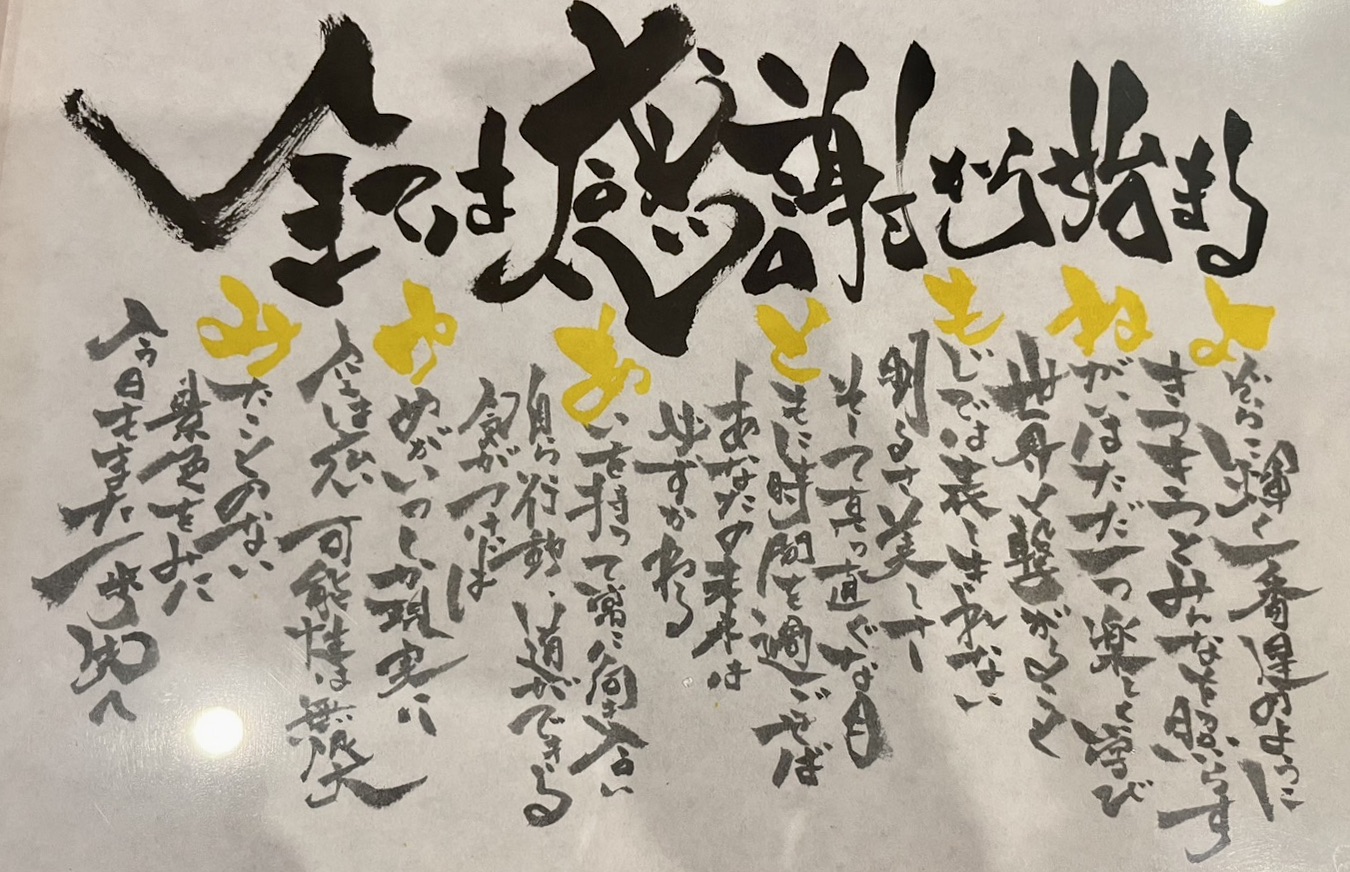 全ては感謝から始まる
よぞらに輝く一番星のように
きっときっとみんなを照らす
ねがいはただ一つ楽しく学び
世界と繋がること
もじでは表しきれない
明るさ美しさ
そして真っ直ぐな目
ともに時間を過ごせば
あなたの未来は
必ずかわる
あいを持って常に向き合い
自ら行動し道ができる
気がつけば
ゆめがいつしか現実に
可能性は無限大
みたことのない
景色をみに
今日もまた一歩先へ